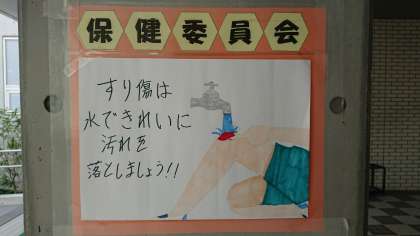 保健委員会
すり傷は
水できれいに
汚れを
落としましょう!!